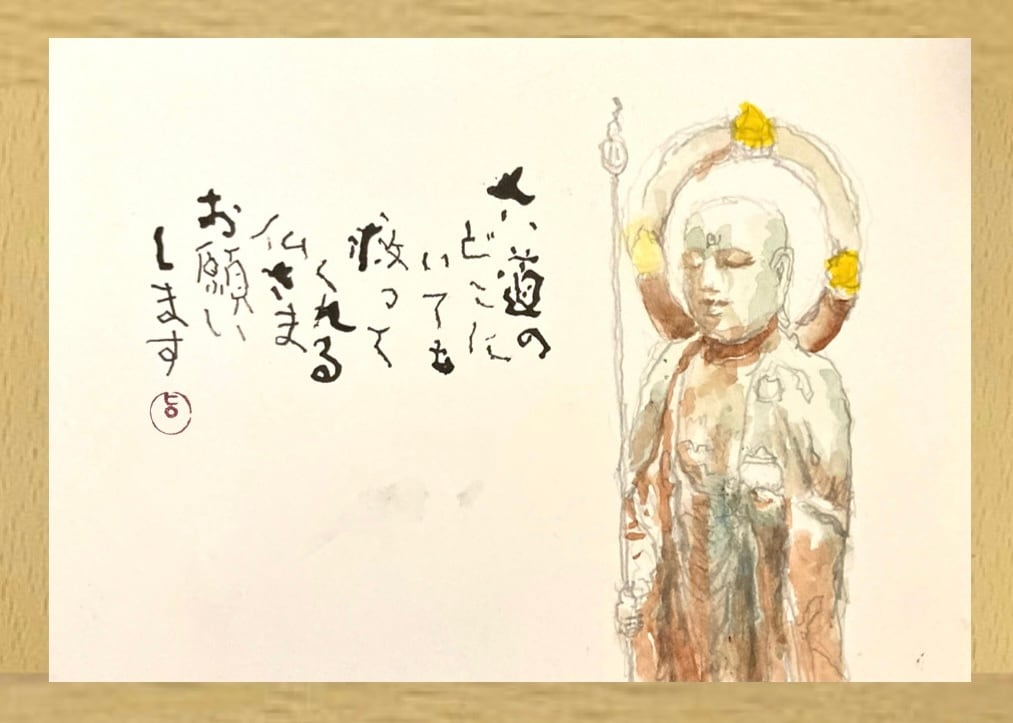 六道の
どこに
いても
救って
くれる
仏さま
お願い
します